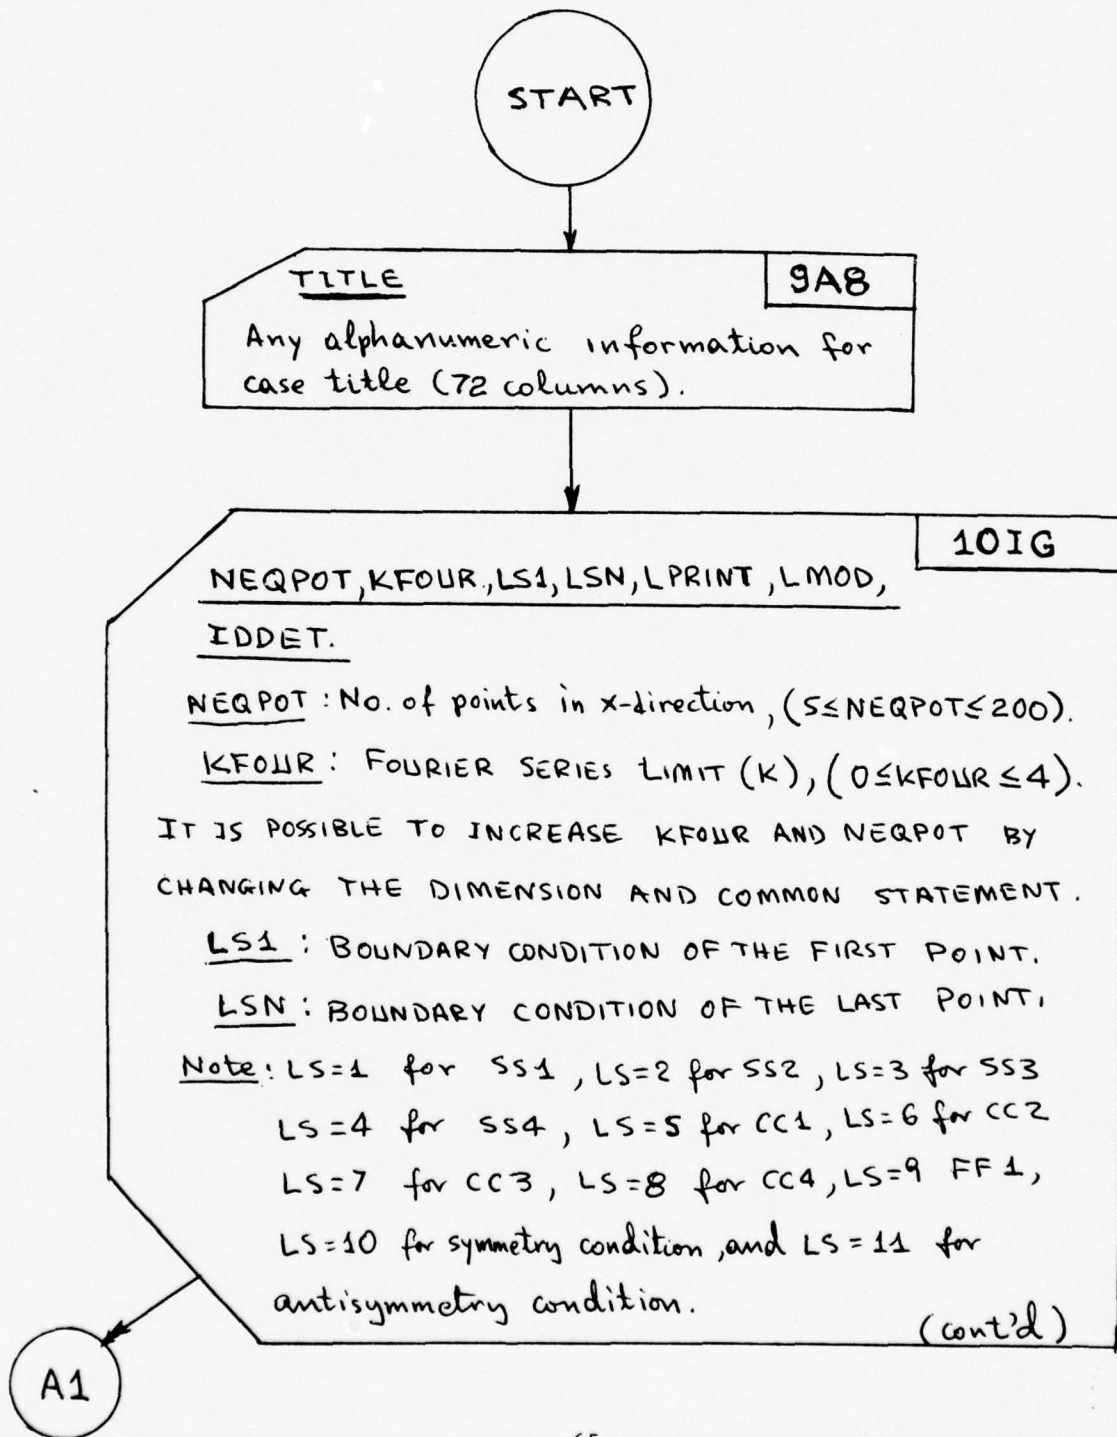 START
TITLE
9A8
Any alphanumeric information for
case title (72 columns).
10I6
NEQPOT, KFOUR, LS1, LSN, LPRINT, LMOD,
IDDET.
NEQPOT: No. of points in x-direction, (5≤NEQPOT≤200).
KFOUR: FOURIER SERIES LIMIT (K), (0≤KFOUR≤4).
IT IS POSSIBLE TO INCREASE KFOUR AND NEQPOT BY
CHANGING THE DIMENSION AND COMMON STATEMENT.
LS1: BOUNDARY CONDITION OF THE FIRST POINT.
LSN: BOUNDARY CONDITION OF THE LAST POINT.
Note: LS=1 for SS1, LS=2 for SS2, LS=3 for SS3
LS=4 for SS4, LS=5 for CC1, LS=6 for CC2
LS=7 for CC3, LS=8 for CC4, LS=9 FF1,
LS=10 for symmetry condition, and LS=11 for
antisymmetry condition.
(cont'd)
A1